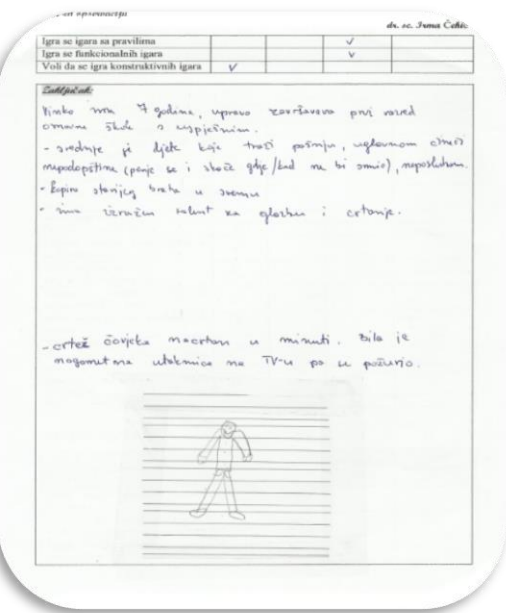 dr. sc. Irma Čehić
Igra se igara sa pravilima √
Igra se funkcionalnih igara √
Voli da se igra konstruktivnih igara √
Zaključak:
ima 7 godina, upravo završava prvi razred
osnovne škole s uspješnim.
- srednje je dijete koje traži pažnju, uglavnom čineći
nepodopštine (penje se i skače gdje/kad ne bi smio), neposlušan.
- kopira starijeg brata u svemu
- ima izražen talent za glazbu i crtanje.
- crtež čovjeka nacrtan u minuti. Bila je
nogometna utakmica na TV-u pa se požurio.